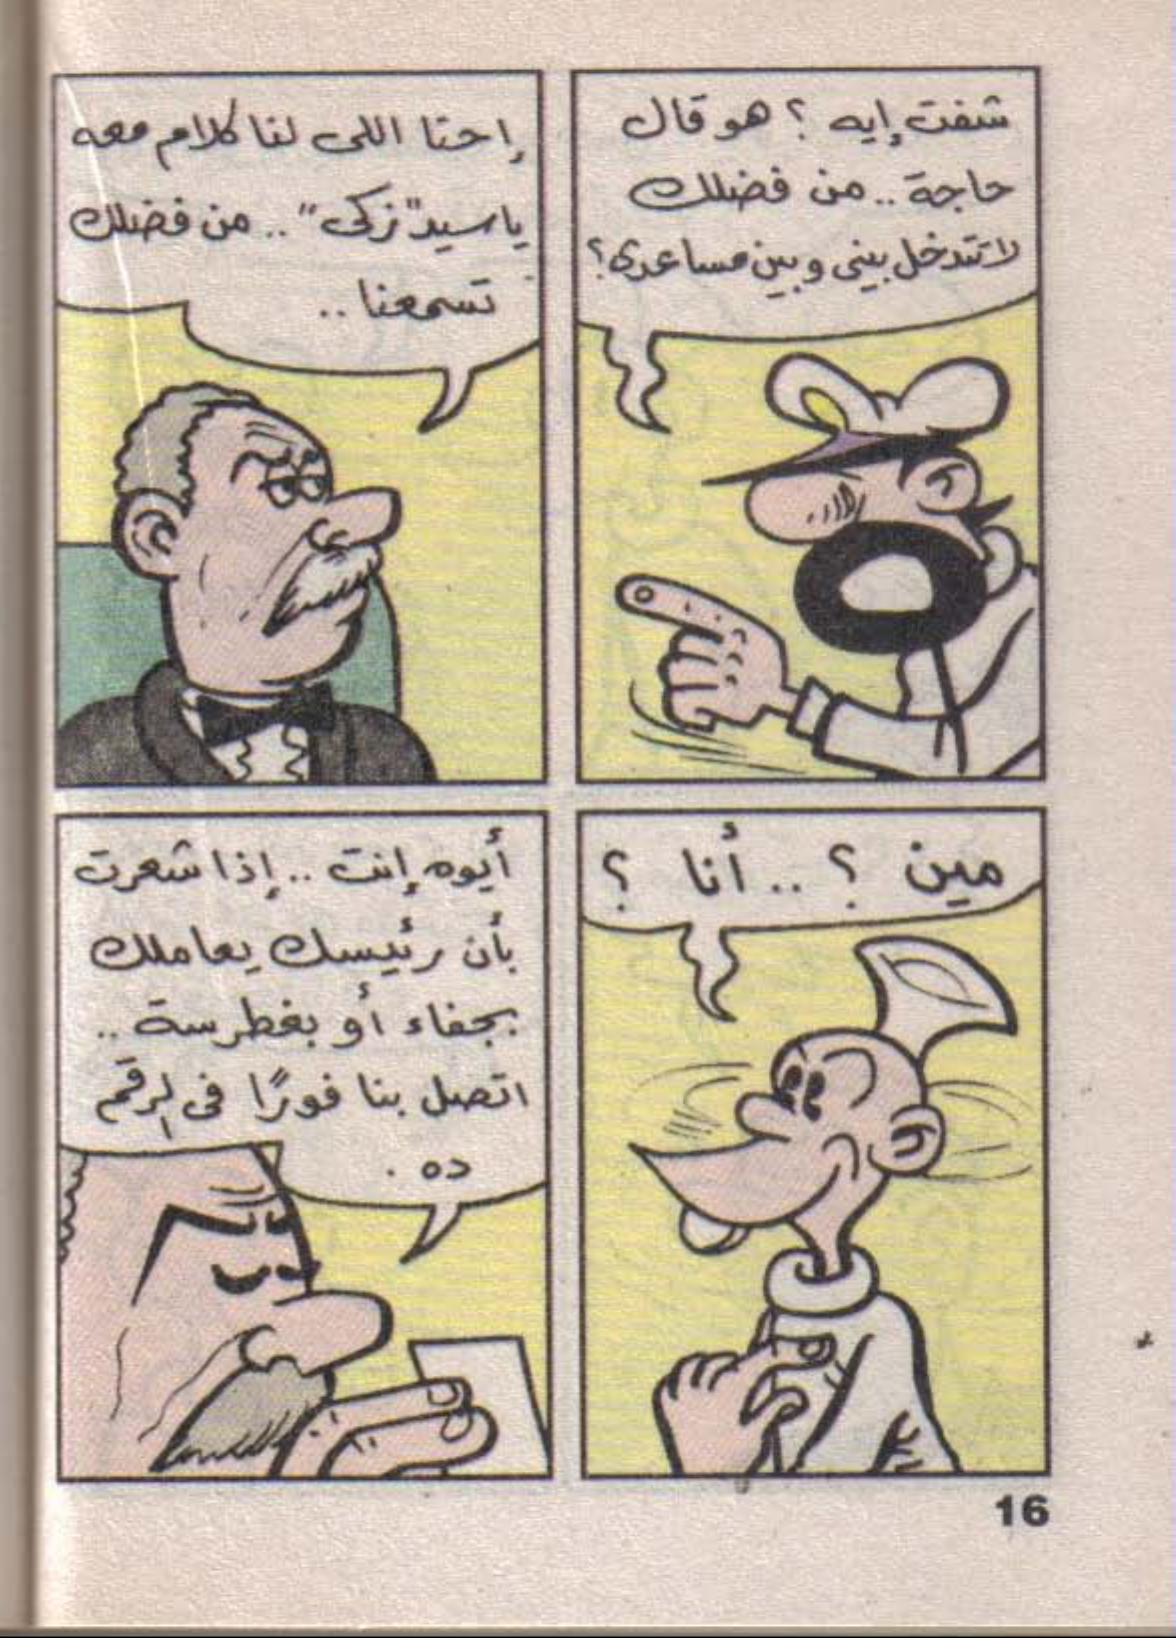 شفت إيه ؟ هو قال
حاجة .. من فضلك
لا تتدخل بيني وبين مساعدى ؟
إحنا اللى لنا كلام معه
ياسيد "زكى" .. من فضلك
تسمعنا ..
مين ؟ .. أنا ؟
أيوه إنت .. إذا شعرت
بأن رئيسك يعاملك
بجفاء أو بغطرسة ..
اتصل بنا فورًا فى الرقم
ده .
16